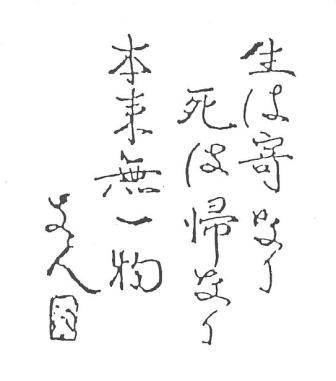 生は寄なり
死は帰なり
本来無一物